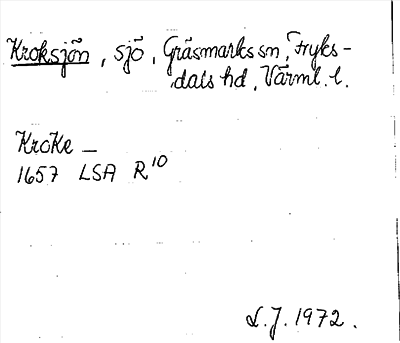 Kroksjön, sjö, Gräsmarks sn, Fryks-
dals hd, Värml. l.
Kroke –
1657 LSA R¹⁰
L.J. 1972.